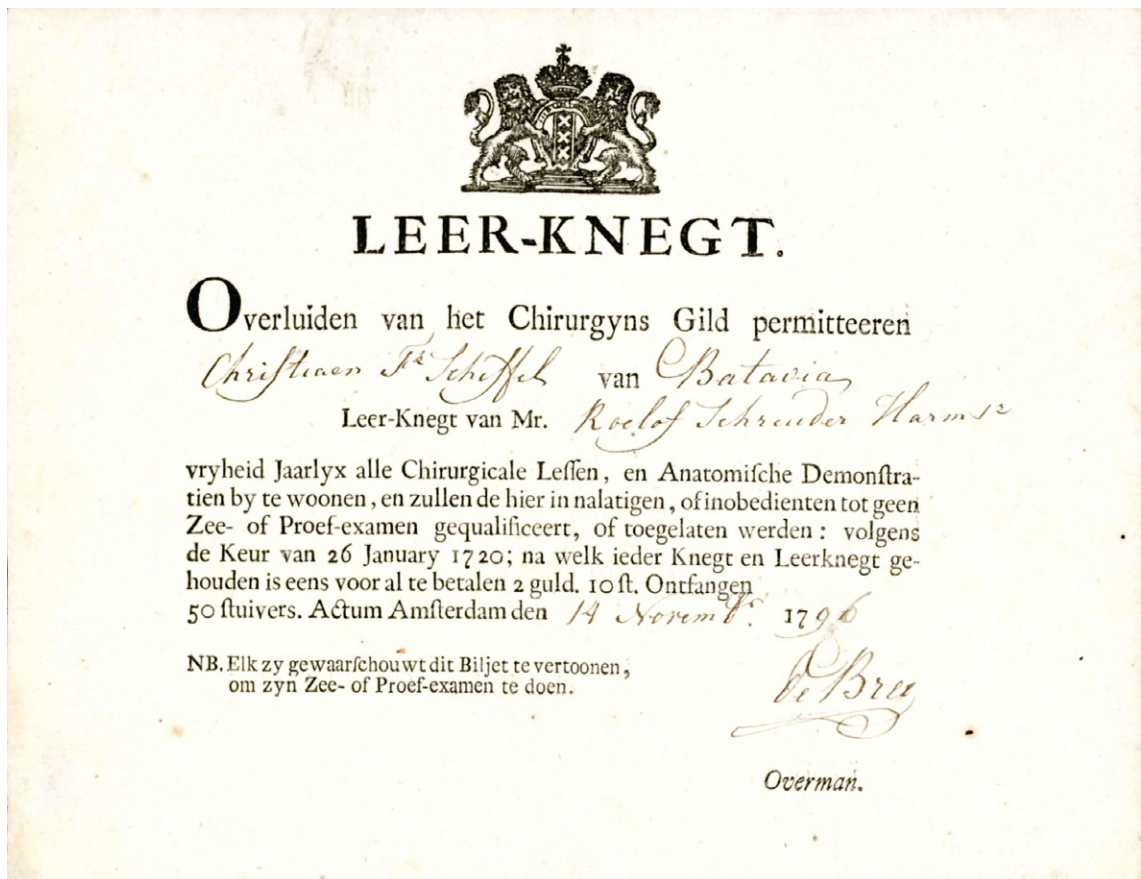 LEER-KNEGT.
Overluiden van het Chirurgyns Gild permitteeren
Christiaen Fk Scheffel van Batavia
Leer-Knegt van Mr. Roelof Schreuder Harmsz
vryheid Jaarlyx alle Chirurgicale Leſſen, en Anatomiſche Demonſtra-
tien by te woonen, en zullen de hier in nalatigen, of inobedienten tot geen
Zee- of Proef-examen gequalificeert, of toegelaten werden: volgens
de Keur van 26 January 1720; na welk ieder Knegt en Leerknegt ge-
houden is eens voor al te betalen 2 guld. 10 ſt. Ontfangen
50 ſtuivers. Actum Amſterdam den 14 Novembr. 1796
NB. Elk zy gewaarſchouwt dit Biljet te vertoonen,
om zyn Zee- of Proef-examen te doen.
De Bree
Overman.